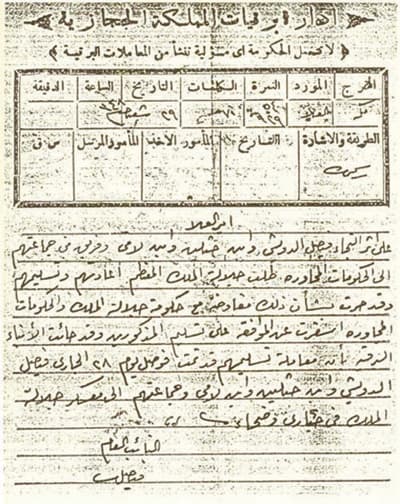 ادارة برقيات المملكة الحجازية
لا تحتمل الحكومة اى مسئولية تنشأ من المعاملات البرقية
المخرج المورد النمرة الكلمات التاريخ الساعة الدقيقة
٢٩ شعبان
الطريقة والاشارة التاريخ المأمور الآخذ المأمور المرسل س ق
رسمى
ام العلا
على اثر التجاء فيصل الدويش وابن حثلين وابن لامى وفريق من جماعتهم
الى الحكومات المجاورة طلب جلالة الملك المعظم اعادتهم وتسليمهم
وقد جرت بشأن ذلك مفاوضة مع حكومة جلالة الملك والحكومات
المجاورة اسفرت عن الموافقة على تسليم المذكورين وقد جائت الأنباء
البرقية بأن معاملة تسليمهم قد تمت فوصل يوم ٢٨ الجارى فيصل
الدويش وابن حثلين وابن لامى وجماعتهم الى معسكر جلالة
الملك فى خبارى وضحا
النائب العام
فيصل